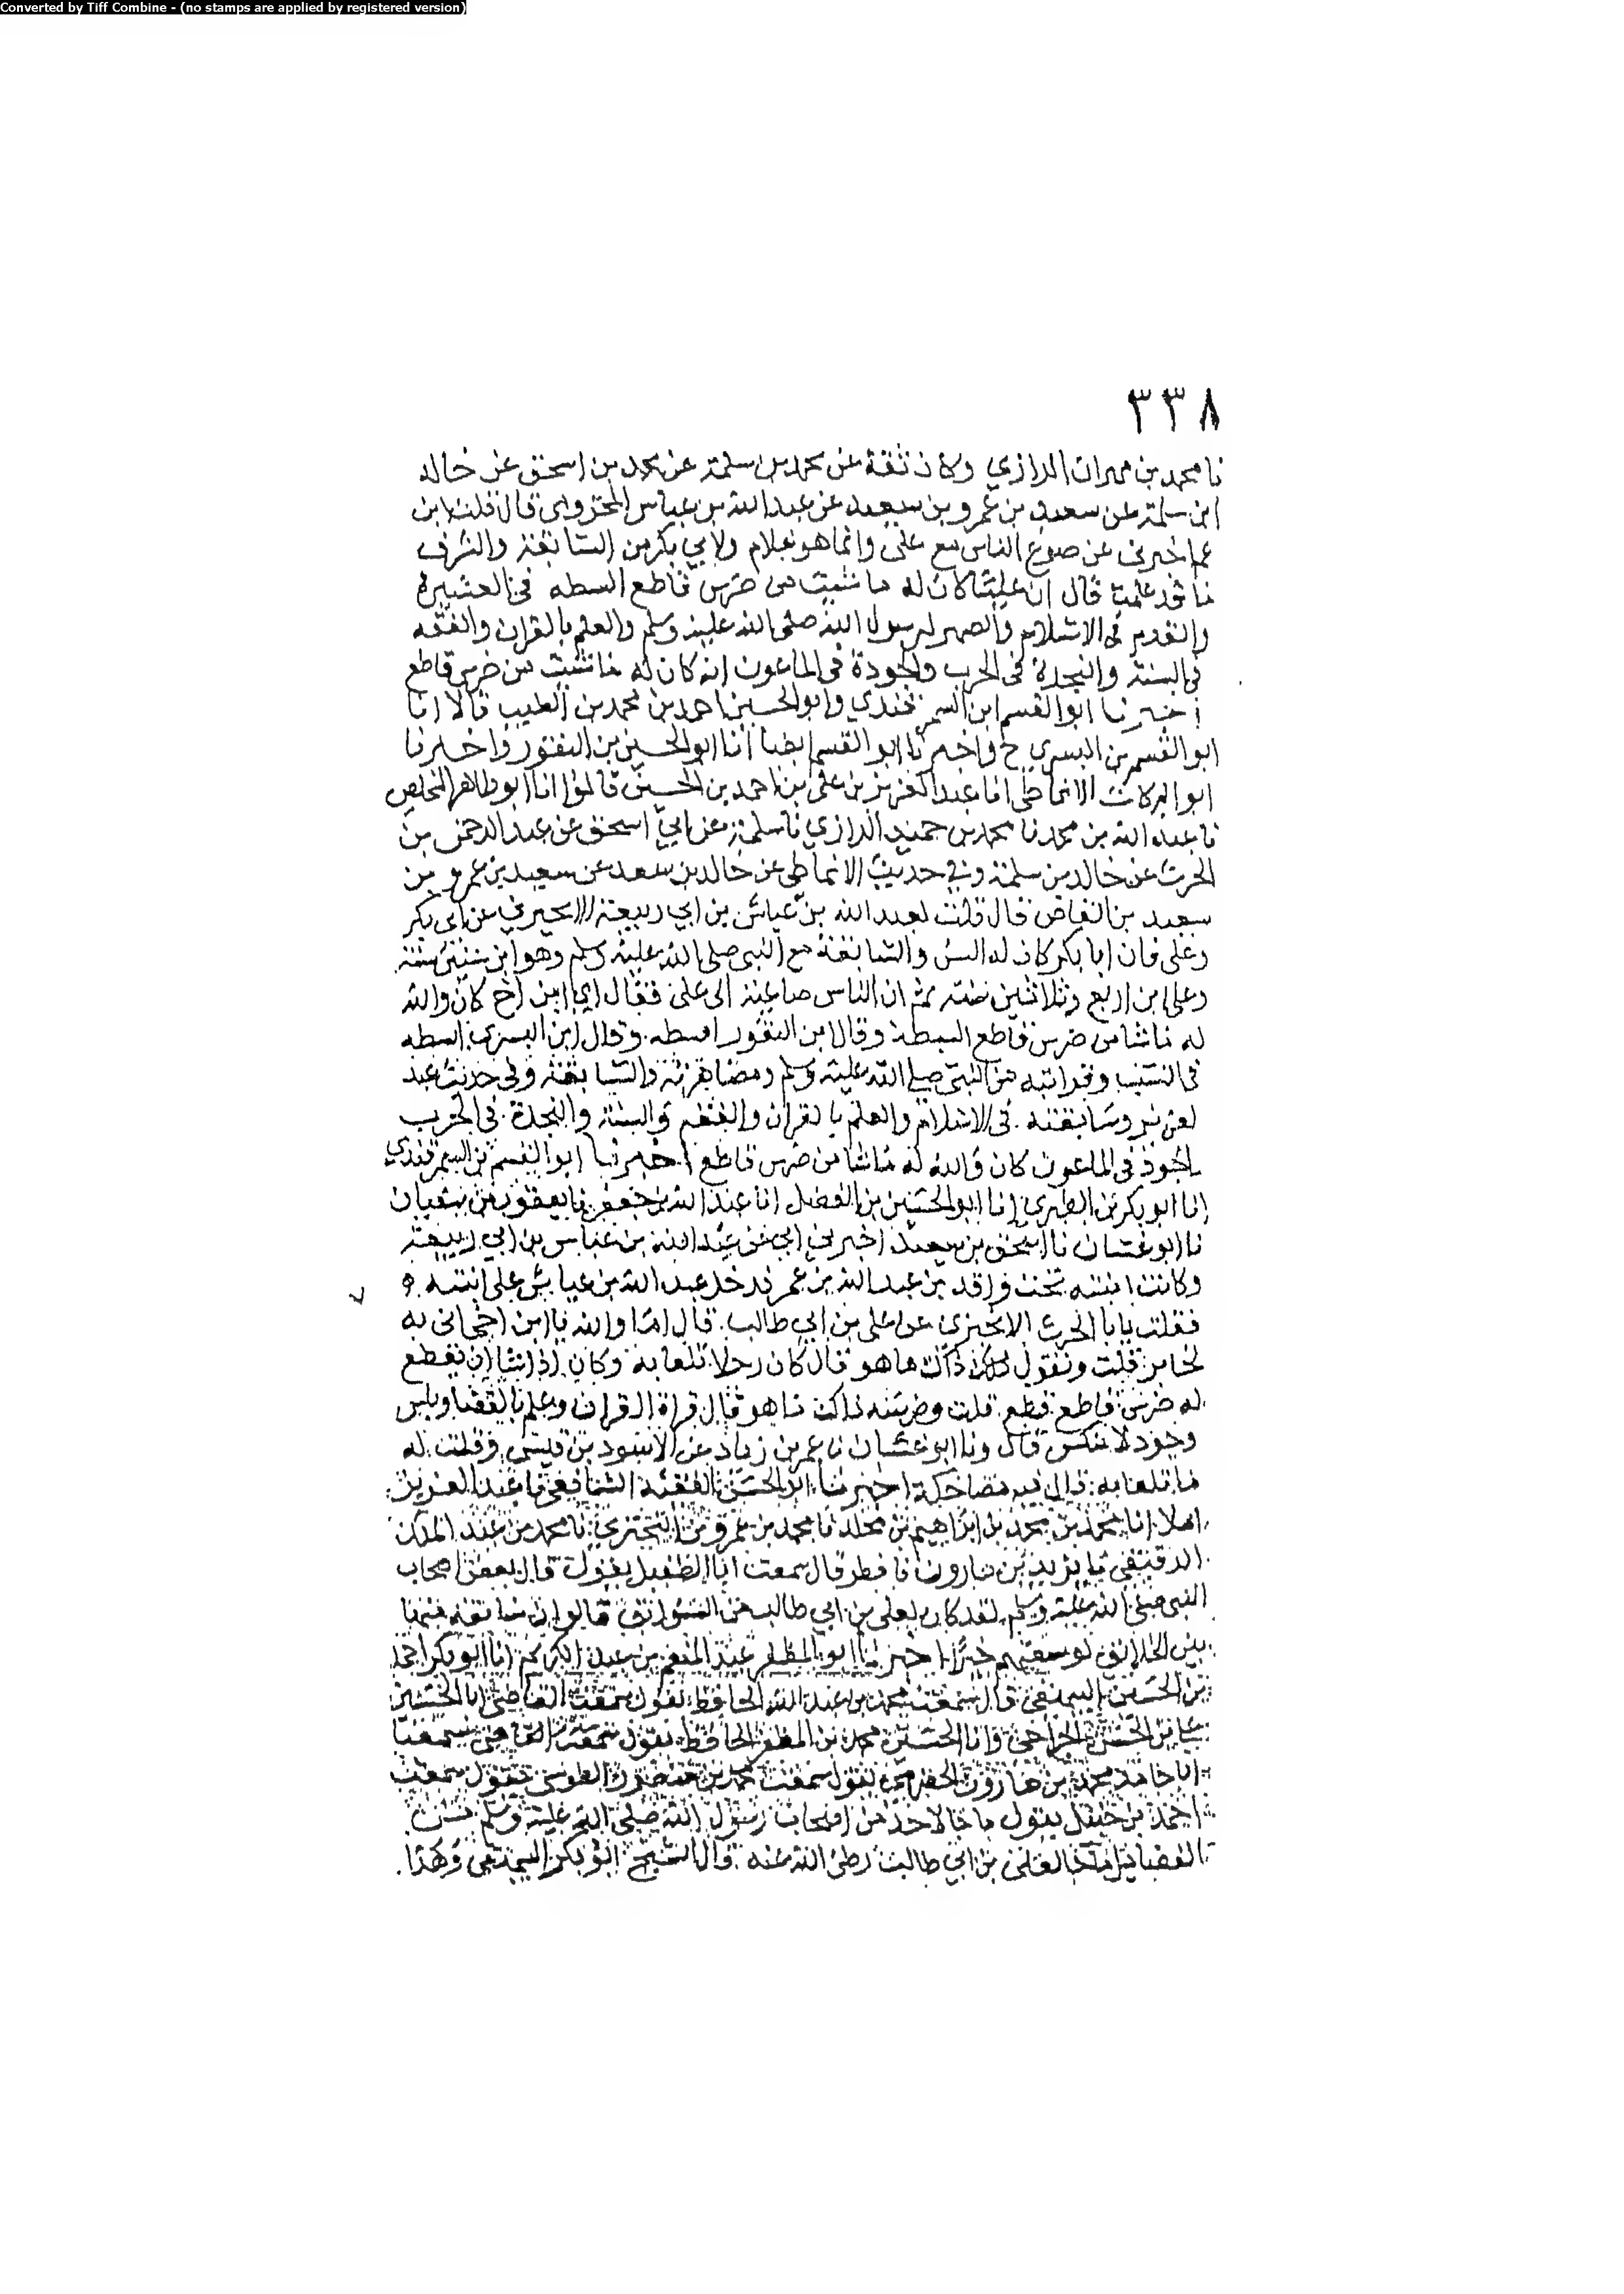 Converted by Tiff Combine - (no stamps are applied by registered version)
٣٣٨
نا محمد بن مهران الرازي وكان ثقة عن محمد بن سلمة عن محمد بن اسحق عن خالد
ابن سلمة عن سعيد بن عمرو بن سعيد عن عبد الله بن عياش المخزومي قال قلت ابن
عم اخبرني عن صوغ الناس مع على وانما هو غلام ولابي بكر من السابقة والشرف
ما قد علمت قال ان عليا كان له ما شيت من ضرس قاطع السطه في العشيرة
والقدم في الاسلام والصهر لرسول الله صلى الله عليه وسلم والعلم بالقران والفقه
في السنة والنجدة في الحرب والجودة في الماعون انه كان له ما شيت من ضرس قاطع
اخبرنا ابو القسم ابن السمرقندي وابو الحسين احمد بن محمد بن الطيب قالا انا
ابو القسم بن البسري ح واخبرنا ابو القسم ايضا انا ابو الحسين بن النقور واخبرنا
ابو البركات الانماطي انا عبد العزيز بن على بن احمد بن الحسين قالوا انا ابو طاهر المخلص
نا عبد الله بن محمد نا محمد بن حميد الرازي نا سلمة عن ابي اسحق عن عبد الرحمن بن
الحرث عن خالد بن سلمة وفي حديث الانماطي عن خالد بن سعد عن سعيد بن عمرو بن
سعيد بن العاص قال قلت لعبد الله بن عياش بن ابي ربيعة الا تخبرني عن ابي بكر
وعلى فان ابا بكر كان له السن والسابقة مع النبي صلى الله عليه وسلم وهو ابن ستين سنة
وعلى ابن اربع وثلاثين سنة ثم ان الناس صاغية الى على فقال اي ابن اخ كان والله
له ما شا من ضرس قاطع السطة وقال ابن النقور اسطه وقال ابن البسري السطه
في النسب وقرابته من النبي صلى الله عليه وسلم ومصاهرته والسابقة وفي حديث عبد
العزيز وسابقته في الاسلام والعلم بالقران والفقه والسنة والنجدة في الحرب
والجود في الماعون كان والله له ما شا من ضرس قاطع اخبرنا ابو القسم بن السمرقندي
انا ابو بكر بن الطبري انا ابو الحسين بن الفضل انا عبد الله بن جعفر نا يعقوب بن سفيان
نا ابو غسان نا اسحق بن سعيد اخبرني ابي عن عبد الله بن عياش بن ابي ربيعة
وكانت ابنته تحت واقد بن عبد الله بن عمر فدخل عبد الله بن عياش على ابنته
فقلت يابا الحرث الا تخبرني عن على بن ابي طالب قال اما والله يا ابن اخي اني به
لخابر قلت وتقول ذاك ما هو قال كان رجلا تلعابة وكان اذا شا ان يقطع
له ضرس قاطع قطع قلت وضرسه ذاك ما هو قال قراة القران وعلم بالقضا وباس
وجود لا ينكس قال ونا ابو غسان نا عمر بن زياد عن الاسود بن قيس وقلت له
ما تلعابه قال فيه مضاحكة اخبرنا ابو الحسن الفقيه الشافعي نا عبد العزيز
املا انا محمد بن محمد بن ابراهيم بن مخلد نا محمد بن عمرو بن البختري نا محمد بن عبد الملك
الدقيقي نا يزيد بن هارون نا فطر قال سمعت ابا الطفيل يقول قال بعض اصحاب
النبي صلى الله عليه وسلم لقد كان لعلى بن ابي طالب من السوابق ما لو ان سابقة منها
بين الخلائق لوسعتهم خيرا اخبرنا ابو المظفر عبد المنعم بن عبد الكريم انا ابو بكر احمد
بن الحسين البيهقي قال سمعت محمد بن عبد الله الحافظ يقول سمعت القاضي ابا الحسن
على بن الحسن الجراحي وابا الحسين محمد بن المظفر الحافظ يقول سمعنا
ابا حامد محمد بن هارون الحضرمي يقول سمعت محمد بن منصور الطوسي يقول سمعت
احمد بن حنبل يقول ما جا لاحد من اصحاب رسول الله صلى الله عليه وسلم من
الفضايل ما جا لعلى بن ابي طالب رضى الله عنه قال الشيخ ابو بكر البيهقي وهذا